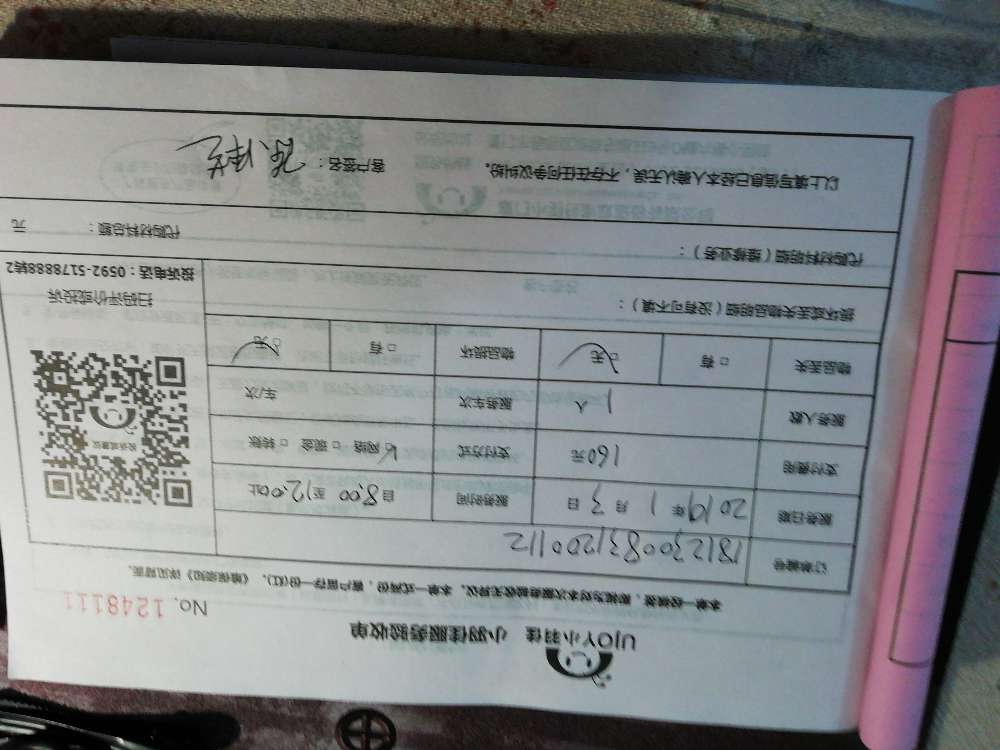 UJOY小羽佳 小羽佳服务验收单
No. 1248111
本单一经填签，即视为对本次服务验收无异议。本单一式两份，客户留存一份(红)。《维保须知》详见背面。
订单编号 1812300831200112
服务日期 2019年 1 月 3 日 服务时间 自 8:00 至 12:00止
支付费用 160元 支付方式 ☑网络 □现金 □转账
服务人数 1 人 服务车次 车/次
物品丢失 □有 □无 物品损坏 □有 □无
损坏或丢失物品明细（没有可不填）：
扫码评价或投诉
投诉电话：0592-5178888转2
代购材料明细（维修业务）： 代购材料总额： 元
以上填写信息已经本人确认无误，不存在任何争议纠纷。 客户签名：